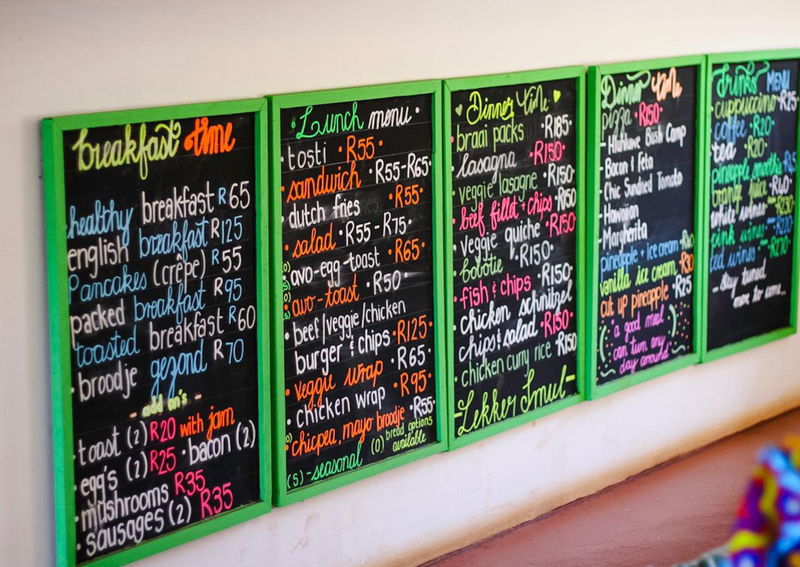 breakfast time
healthy breakfast R65
english breakfast R125
Pancakes (crêpe) R55
packed breakfast R95
toasted breakfast R60
broodje gezond R70
- add on's -
toast (2) R20 with jam
egg's (2) R25 · bacon (2)
mushrooms R35
sausages (2) R35
Lunch menu
tosti · R55 ·
sandwich · R55-R65 ·
dutch fries · R55 ·
salad · R55-R75 ·
avo-egg-toast · R65 ·
avo-toast · R50 ·
beef/veggie/chicken
burger & chips · R125 ·
veggie wrap · R65 ·
chicken wrap · R95 ·
chicpea, mayo broodje · R55 ·
(s) -seasonal (o) bread options
available
Dinner time
braai packs · R185 ·
lasagna · R150 ·
veggie lasagne · R150
beef fillet + chips · R150
veggie quiche · R150
bobotie · R150 ·
fish & chips · R150 ·
chicken schnitzel
chips & salad · R150
chicken curry rice · R150
- Lekker Smul -
Dinner time
pizza R150
- Hluhluwe Bush Camp
- Bacon & Feta
- Chic Sundried Tomato
- Hawaiian
- Margherita
pineapple + ice cream
vanilla ice cream R30
cut up pineapple · R25
"a good meal
can turn any
day around"
Drinks MENU
cuppuccino R25
coffee · R20 ·
tea · R20
pineapple
orange juice
white wines
pink wines
red wines
... stay tuned
more to come...